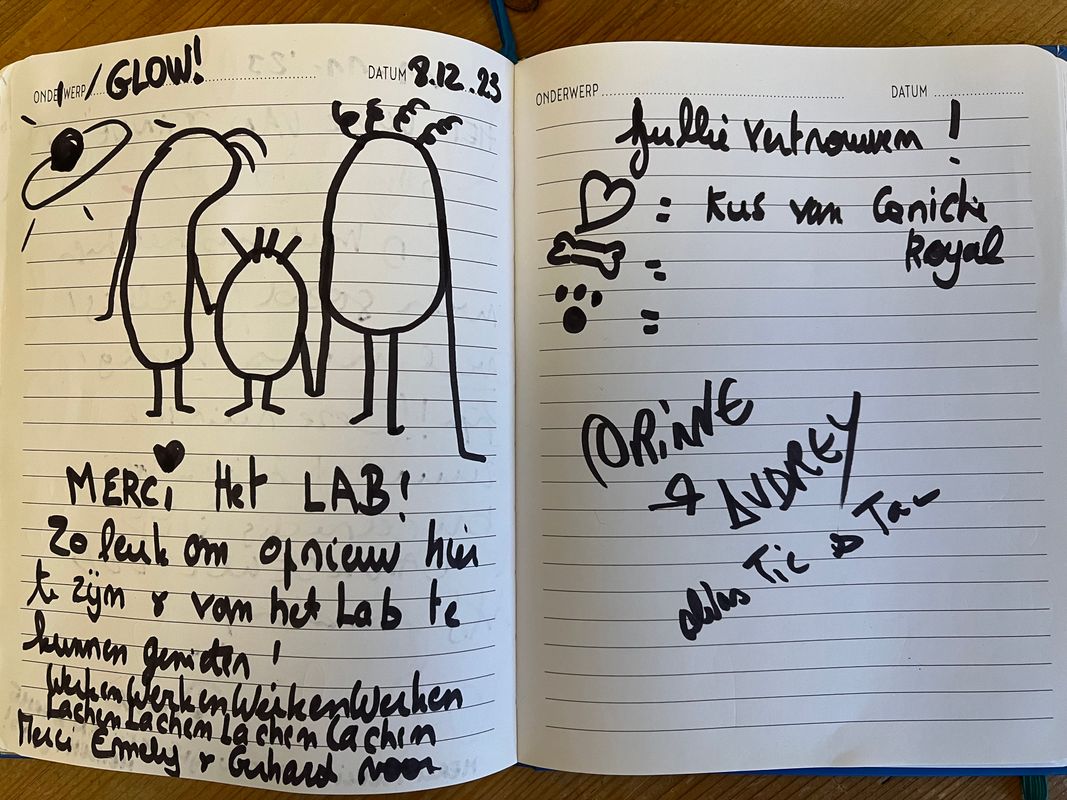 ONDERWERP
/ GLOW!
DATUM 8.12.23
MERCi Het LAB!
Zo leuk om opnieuw hier
te zijn & van het Lab te
kunnen genieten !
Werken Werken Werken Werken
Lachen Lachen Lachen Lachen
Merci Emely & Gerhard voor
ONDERWERP
DATUM
jullie vertrouwen !
= Kus van Caniche
Royal
=
=
CORiNNE
& AUDREY
alias Tic & Tac